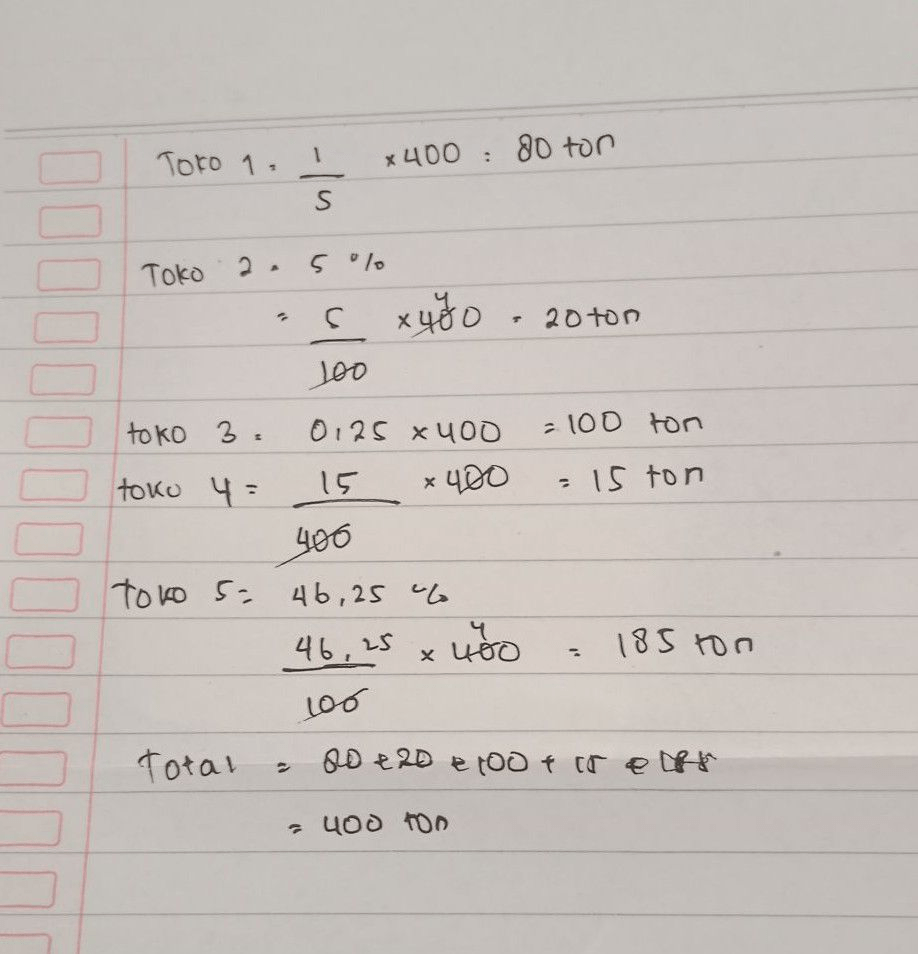 Toko 1 = 1/5 × 400 = 80 ton
Toko 2 = 5 %
= 5/100 × 400 4 = 20 ton
toko 3 = 0,25 × 400 = 100 ton
toko 4 = 15/400 × 400 = 15 ton
Toko 5 = 46,25 %
46,25/100 × 400 4 = 185 ton
Total = 80 + 20 + 100 + 15 +
= 400 ton